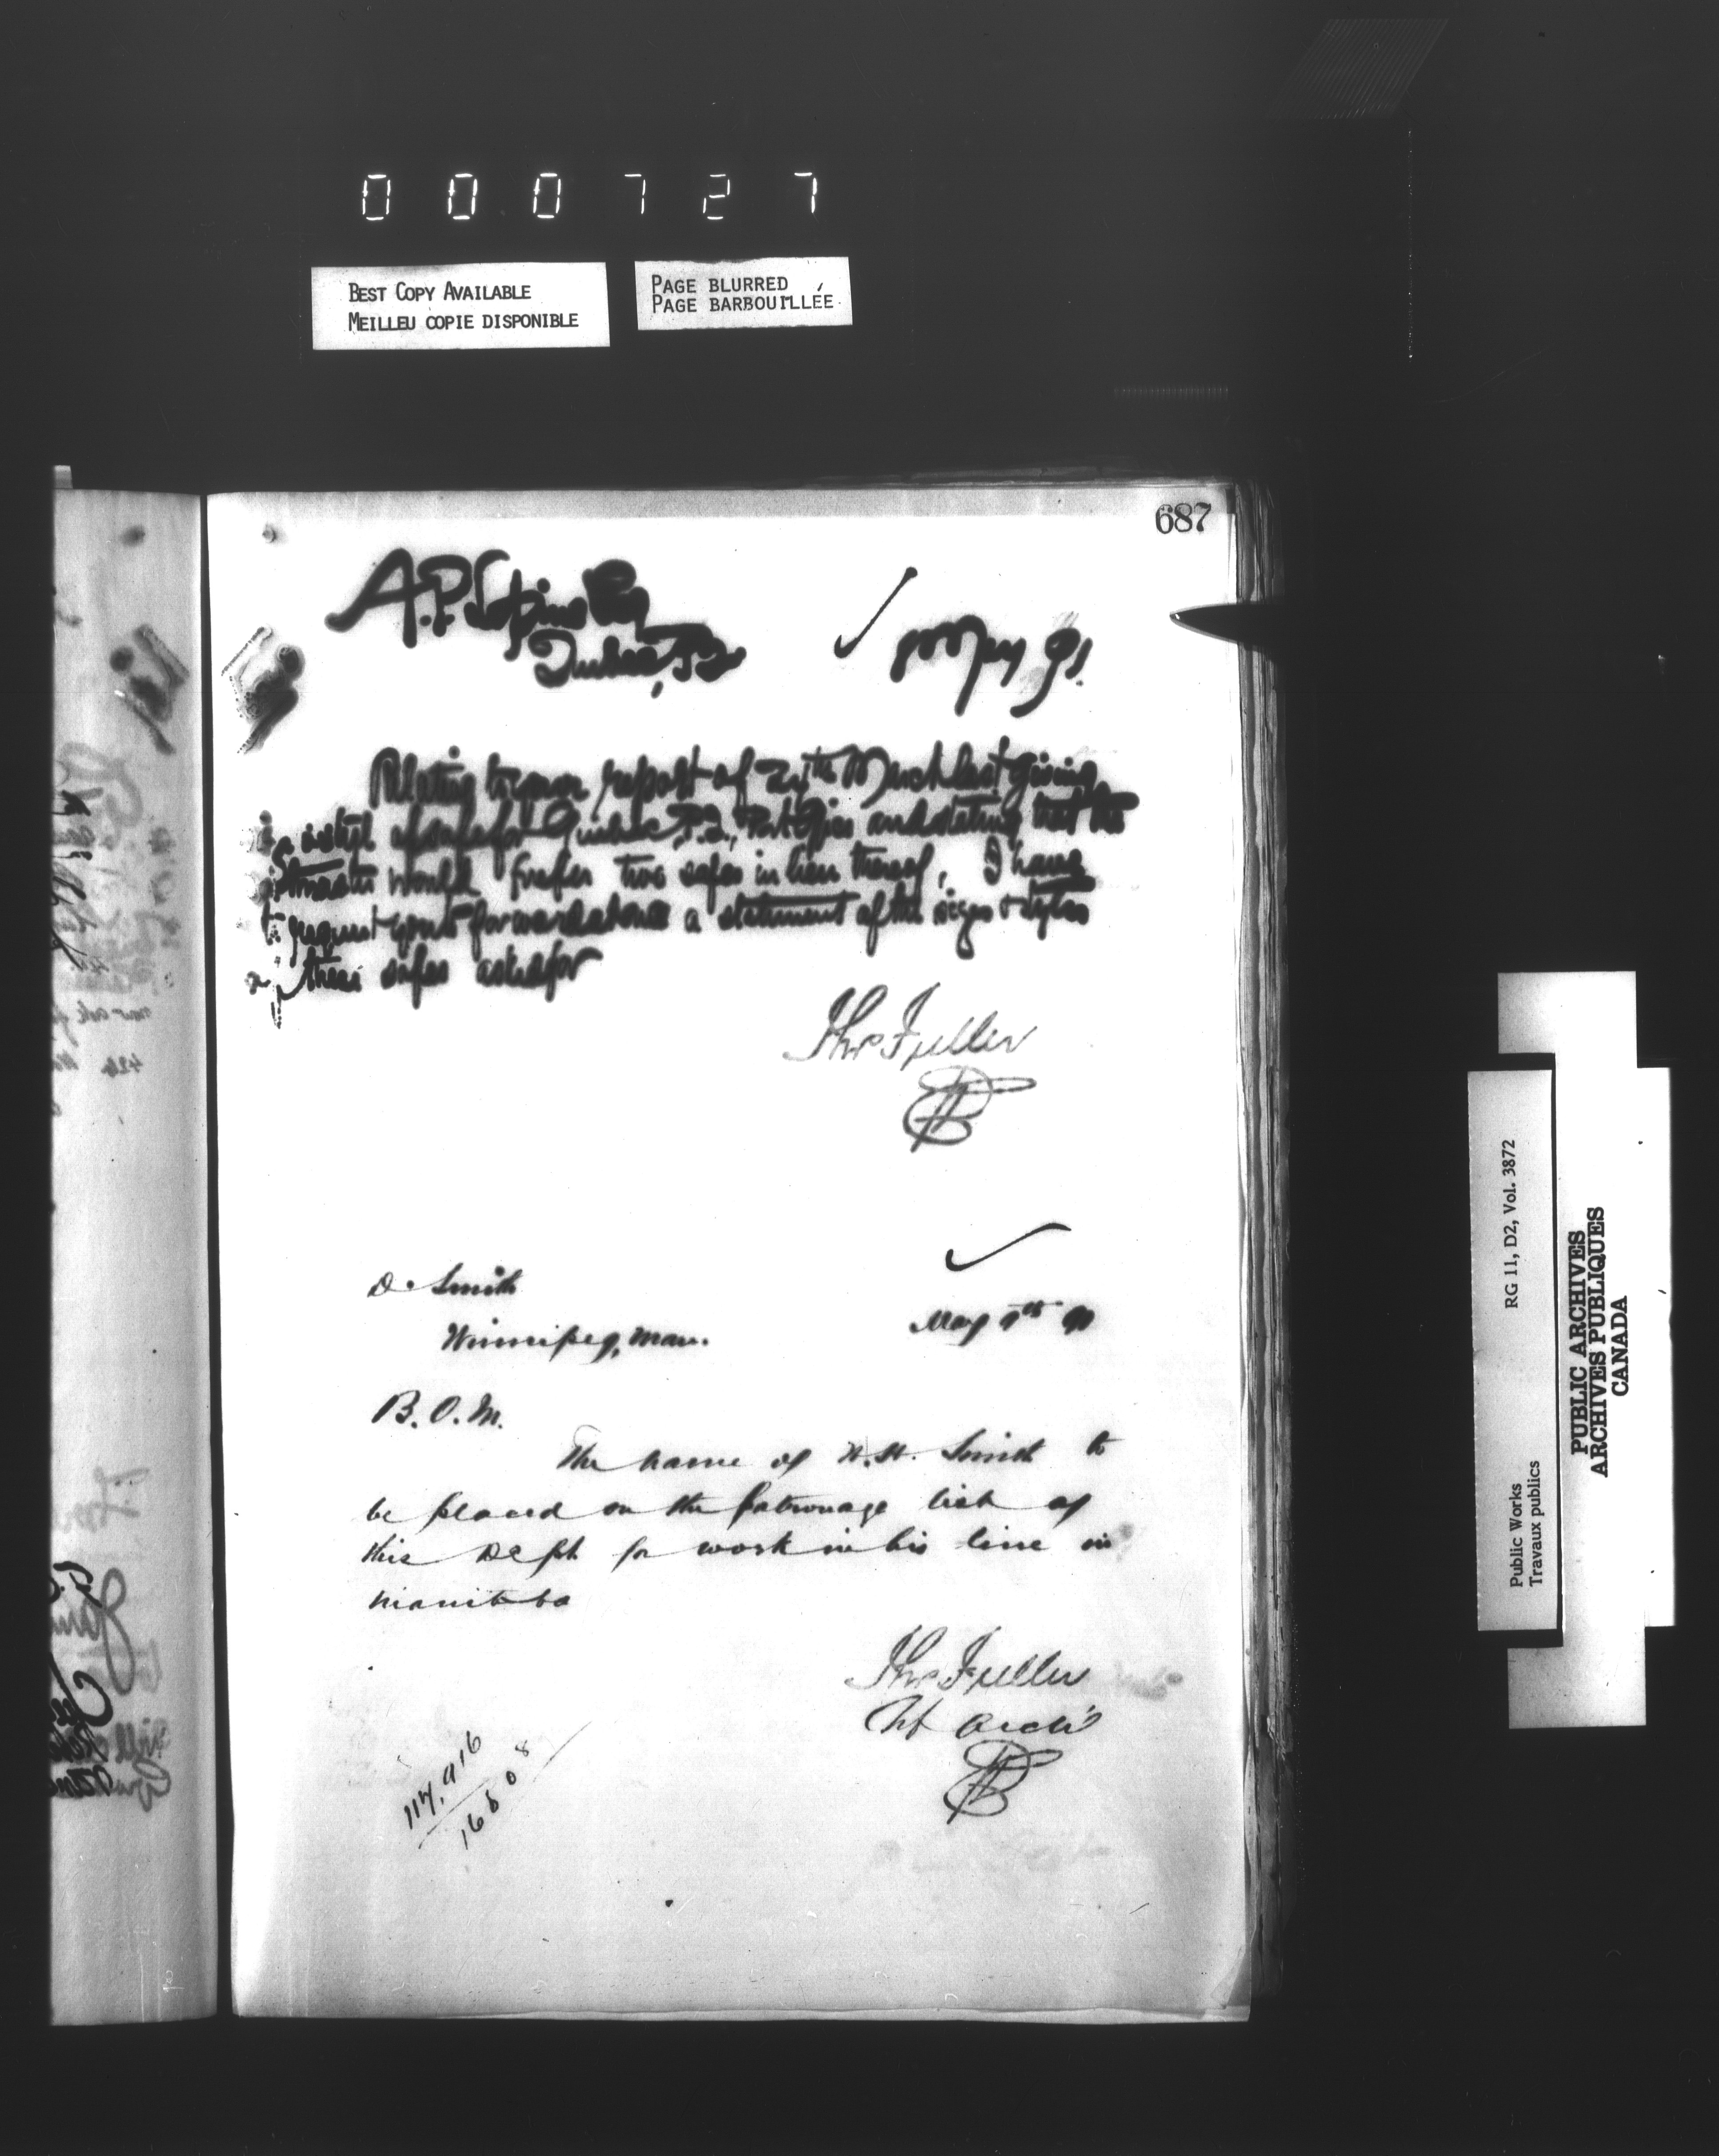 000727
BEST COPY AVAILABLE
MEILLEU COPIE DISPONIBLE
PAGE BLURRED
PAGE BARBOUILLÉE
687
A.P. Esq
Quebec, P.Q.
May 91.
Relating to your report of 24th March last giving
a sketch of safe for Quebec P.Q., Post Office and stating that the
Postmaster would prefer two safes in lieu thereof, I have
to request you to forward at once a statement of the sizes & styles
these safes asked for
Thos Fuller
D. Smith
Winnipeg, Man.
May
B. O. M.
The name of Smith to
be placed on the patronage list of
this Dept for work in his line in
Manitoba
Thos Fuller
Ch Archt
Public Works
Travaux publics
RG 11, D2, Vol. 3872
PUBLIC ARCHIVES
ARCHIVES PUBLIQUES
CANADA